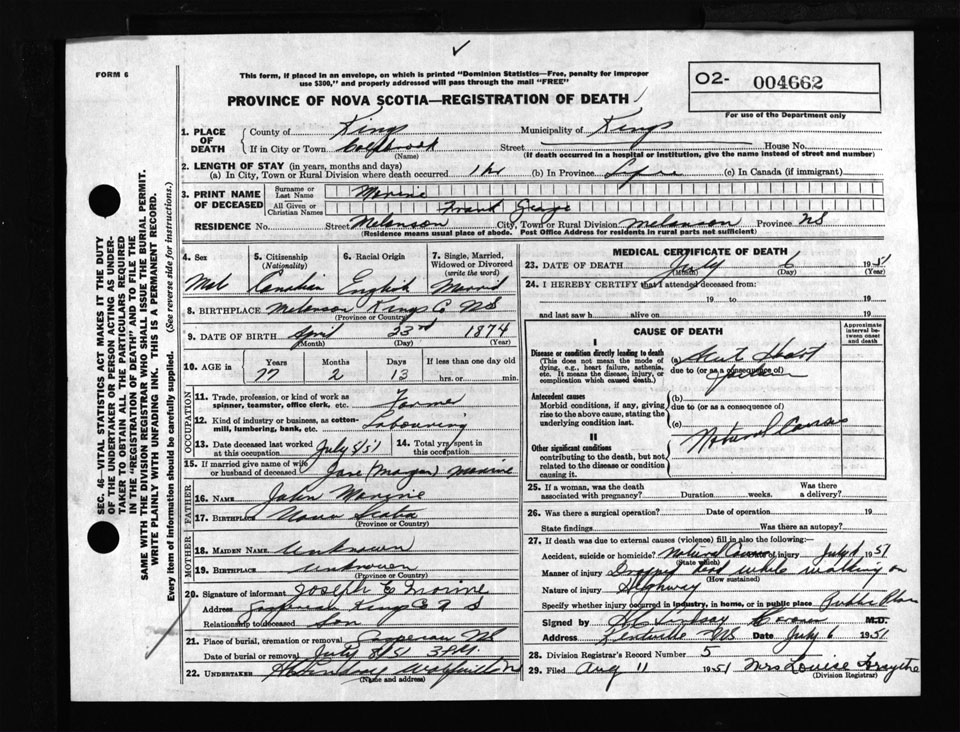 FORM 6
This form, if placed in an envelope, on which is printed "Dominion Statistics—Free, penalty for improper
use $300," and properly addressed will pass through the mail "FREE"
O2- 004662
For use of the Department only
PROVINCE OF NOVA SCOTIA—REGISTRATION OF DEATH
1. PLACE OF DEATH
County of Kings Municipality of Kings
If in City or Town Coldbrook Street House No.
(Name) (If death occurred in a hospital or institution, give the name instead of street and number)
2. LENGTH OF STAY (in years, months and days)
(a) In City, Town or Rural Division where death occurred 1 hr (b) In Province Life (c) In Canada (if immigrant)
3. PRINT NAME OF DECEASED
Surname or Last Name
All Given or Christian Names Frank George
RESIDENCE No. Street Melanson City, Town or Rural Division Melanson Province NS
(Residence means usual place of abode. Post Office Address for residents in rural parts not sufficient)
4. Sex 5. Citizenship (Nationality) 6. Racial Origin 7. Single, Married, Widowed or Divorced (write the word)
Mal Canadian English Married
8. BIRTHPLACE Melanson Kings Co NS
(Province or Country)
9. DATE OF BIRTH April 23rd 1874
(Month) (Day) (Year)
10. AGE in Years Months Days If less than one day old
77 2 13 hrs. or min.
OCCUPATION
11. Trade, profession, or kind of work as spinner, teamster, office clerk, etc. Farmer
12. Kind of industry or business, as cotton-mill, lumbering, bank, etc. Labouring
13. Date deceased last worked at this occupation July 5/51 14. Total yrs. spent in this occupation
15. If married give name of wife or husband of deceased Jane (Morgan)
FATHER
16. NAME John
17. BIRTHPLACE Nova Scotia
(Province or Country)
MOTHER
18. MAIDEN NAME Unknown
19. BIRTHPLACE Unknown
(Province or Country)
20. Signature of informant Joseph E
Address Gaspereau Kings Co N S
Relationship to deceased Son
21. Place of burial, cremation or removal Gaspereau NS
Date of burial or removal July 8/51 3 PM.
22. UNDERTAKER Wolfville NS
(Name and address)
MEDICAL CERTIFICATE OF DEATH
23. DATE OF DEATH July 6 1951
(Month) (Day) (Year)
24. I HEREBY CERTIFY that I attended deceased from:
19 to 19
and last saw h alive on 19
CAUSE OF DEATH
Approximate interval between onset and death
I
Disease or condition directly leading to death
(This does not mean the mode of dying, e.g., heart failure, asthenia, etc. It means the disease, injury, or complication which caused death.)
(a) Acute Heart
due to (or as a consequence of)
Failure
Antecedent causes
Morbid conditions, if any, giving rise to the above cause, stating the underlying condition last.
(b)
due to (or as a consequence of)
(c)
II
Other significant conditions
contributing to the death, but not related to the disease or condition causing it.
Natural Causes
25. If a woman, was the death associated with pregnancy? Duration weeks. Was there a delivery?
26. Was there a surgical operation? Date of operation 19
State findings Was there an autopsy?
27. If death was due to external causes (violence) fill in also the following:—
Accident, suicide or homicide? Natural Causes Date of injury July 1951
(State which)
Manner of injury Dropped dead while walking on
(How sustained)
Nature of injury Highway
Specify whether injury occurred in industry, in home, or in public place Public Place
Signed by Lindsay Coroner M.D.
Address Kentville NS Date July 6 1951
28. Division Registrar's Record Number 5
29. Filed Aug 11 1951 Mrs Louise Forsythe
(Division Registrar)
SEC. 46—VITAL STATISTICS ACT MAKES IT THE DUTY
OF THE UNDERTAKER OR PERSON ACTING AS UNDER-
TAKER TO OBTAIN ALL THE PARTICULARS REQUIRED
IN THE "REGISTRATION OF DEATH" AND TO FILE THE
SAME WITH THE DIVISION REGISTRAR WHO SHALL ISSUE THE BURIAL PERMIT.
WRITE PLAINLY WITH UNFADING INK. THIS IS A PERMANENT RECORD.
Every item of information should be carefully supplied. (See reverse side for instructions.)